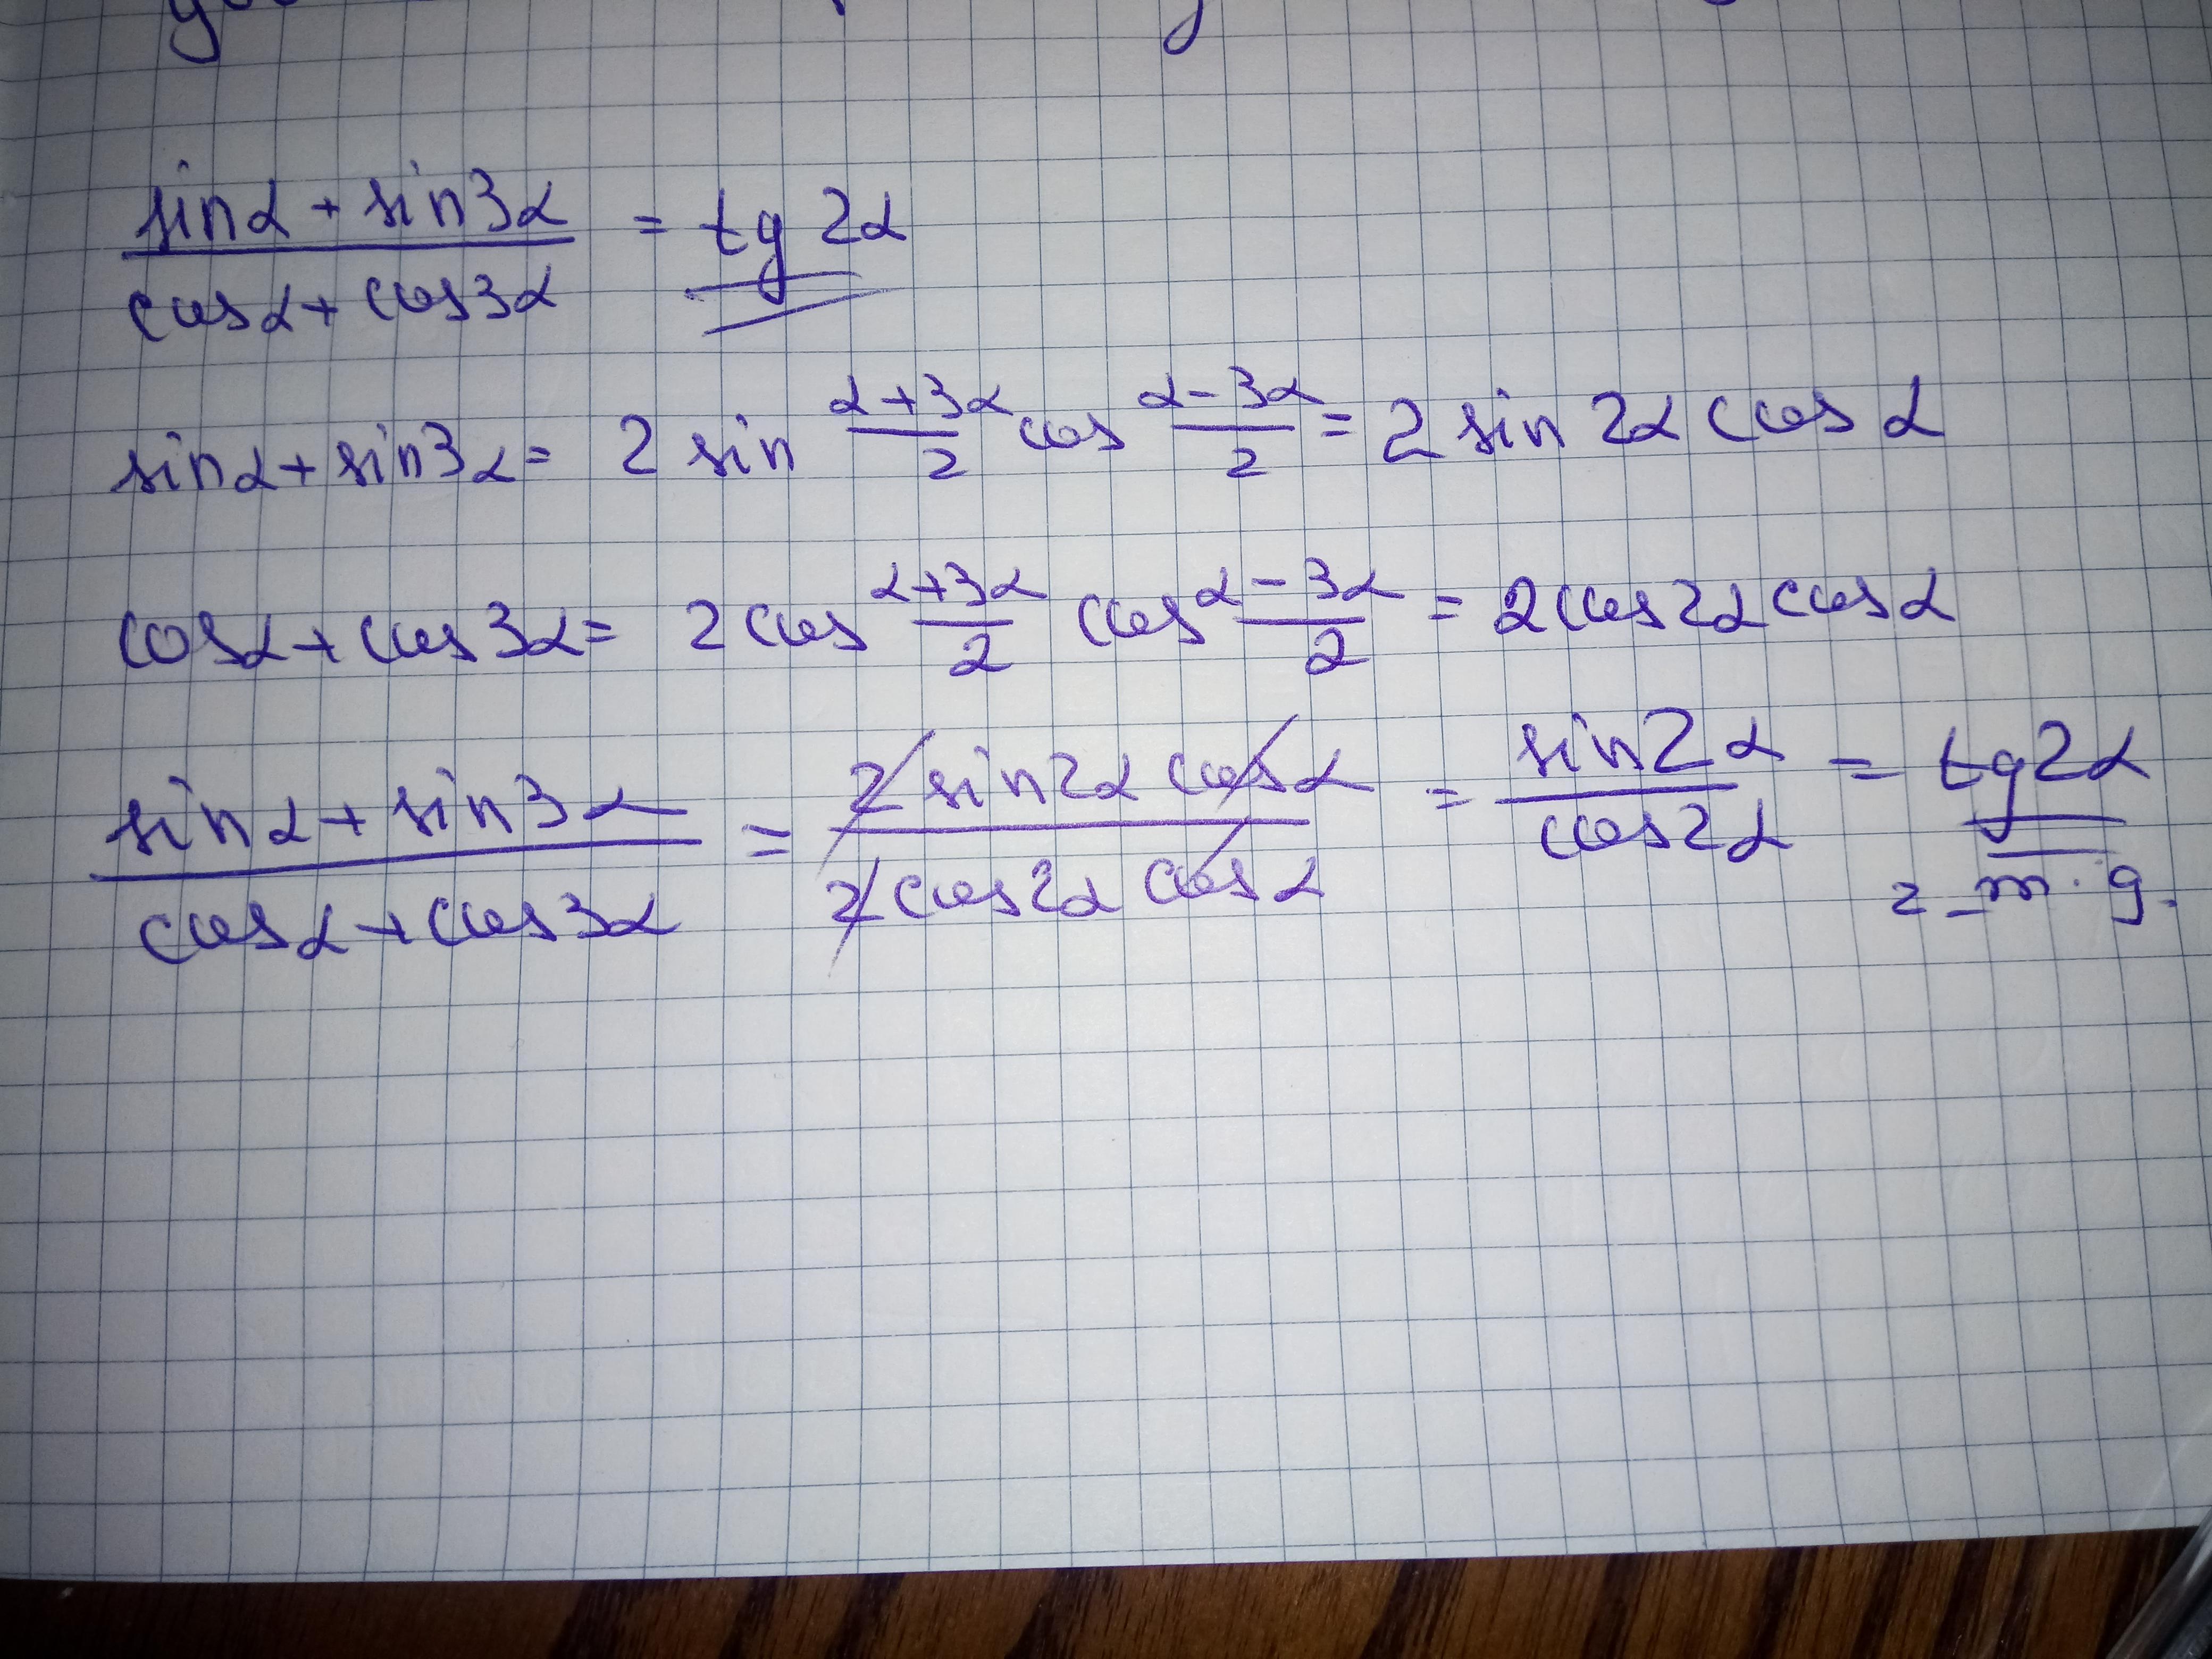 sinα + sin3α / cosα + cos3α = tg 2α
sinα + sin3α = 2 sin α+3α/2 cos α-3α/2 = 2 sin 2α cos α
cosα + cos 3α = 2 cos α+3α/2 cos α-3α/2 = 2 cos2α cosα
sinα + sin3α / cosα + cos3α = 2 sin2α cosα / 2 cos2α cosα = sin2α / cos2α = tg2α